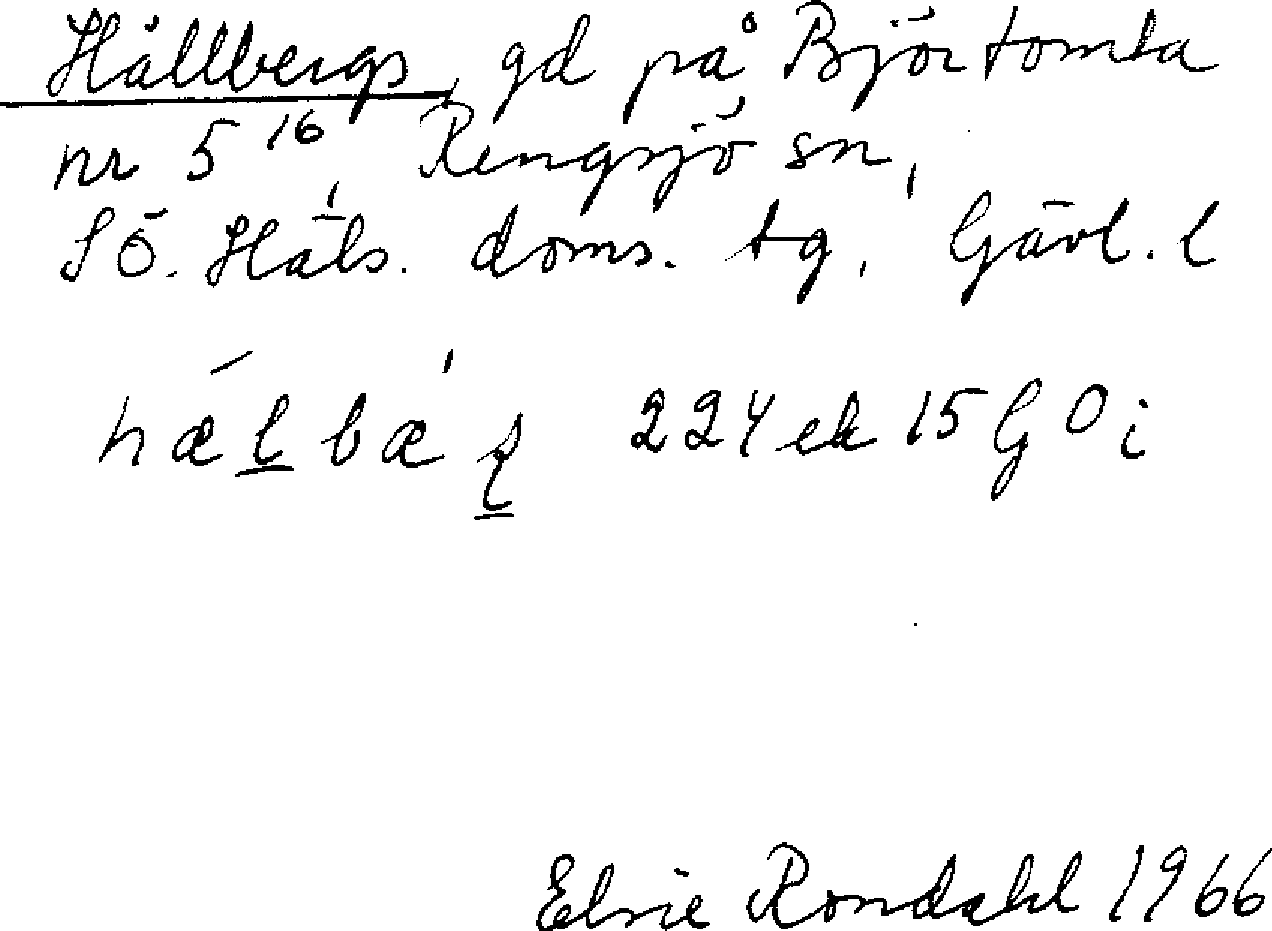 Hållbergs, gd på Björtomta
nr 5 16, Rengsjö sn,
SÖ. Häls. doms. tg, Gävl. l
224 ek 15 G O i
Elsie Rondahl 1966